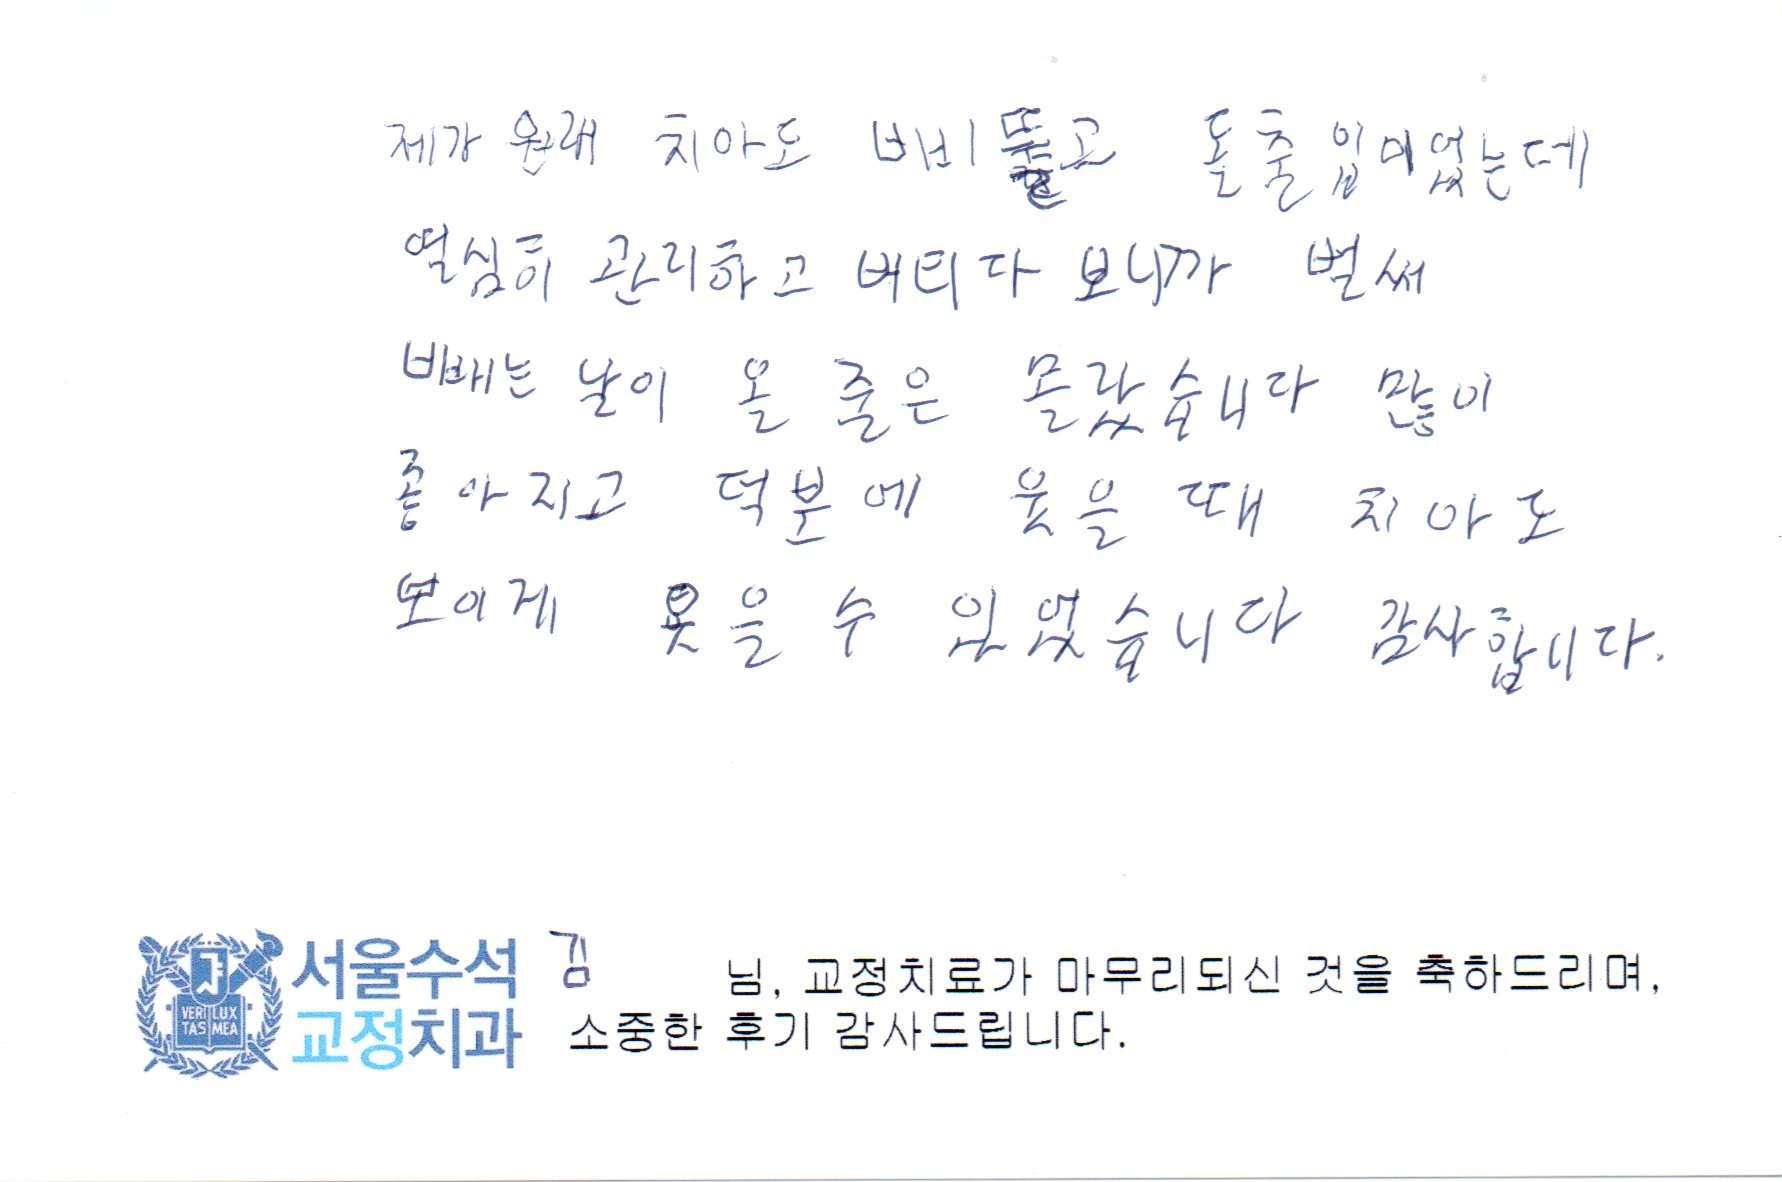 제가 원래 치아도 삐뚤고 돌출입이었는데
열심히 관리하고 버티다 보니까 벌써
빼는 날이 올 줄은 몰랐습니다 많이
좋아지고 덕분에 웃을 때 치아도
보이게 웃을 수 있었습니다 감사합니다.
VERI LUX
TAS MEA
서울수석
교정치과
김 님, 교정치료가 마무리되신 것을 축하드리며,
소중한 후기 감사드립니다.